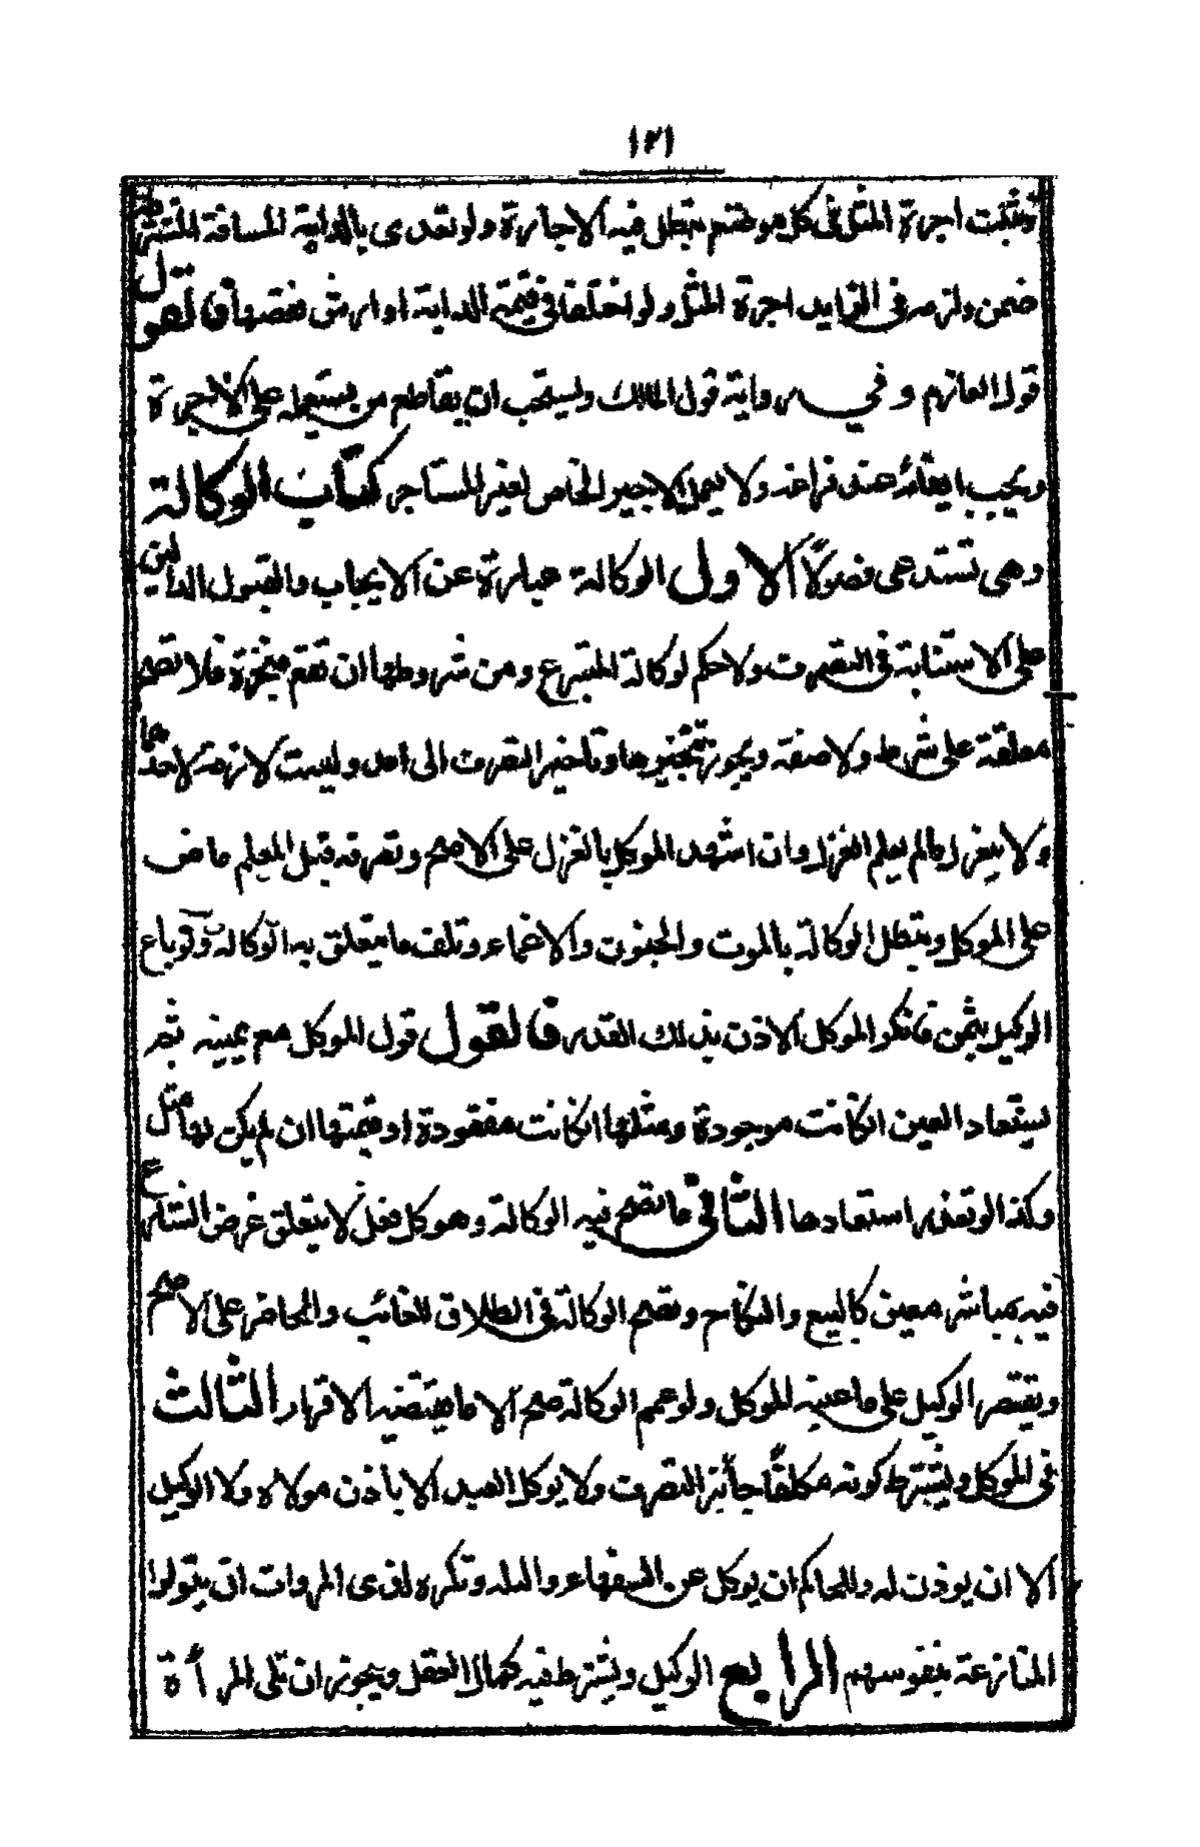 ١٢١
وتثبت اجرة المثل فى كل موضع تبطل فيه الاجارة ولو تعدى بالدابة المسافة المشترطة
ضمن ولزمه فى الزايد اجرة المثل ولو اختلفا فى قيمة الدابة او ارش نقصها فالقول
قول الغارم وفي رواية قول المالك ويستحب ان يقاطع من يستعمله على الاجرة
ويجب ايفائه عند فراغه ولا يعمل الاجير الخاص لغير المستاجر كتاب الوكالة
وهى تستدعى فصولًا الاول الوكالة عبارة عن الايجاب والقبول الدالين
على الاستنابة فى التصرف ولا حكم لوكالة المتبرع ومن شروطها ان تقع منجزة فلا تصح
معلقة على شرط ولا صفة ويجوز تنجيزها وتاخير التصرف الى امد وليست لازمة لاحدهما
ولا ينعزل مالم يعلم العزل وان اشهد الموكل بالعزل على الاصح وتصرفه قبل العلم ماض
على الموكل وتبطل الوكالة بالموت والجنون والاغماء وتلف ما يتعلق به الوكالة ولو باع
الوكيل بثمن فانكر الموكل الاذن بذلك القدر فالقول قول الموكل مع يمينه ثم
يستعاد العين انكانت موجودة ومثلها انكانت مفقودة او قيمتها ان لم يكن لها مثل
وكذا لو تعذر استعادها الثانى ما تصح فيه الوكالة وهو كل فعل لا يتعلق غرض الشارع
فيه بمباشر معين كالبيع والنكاح وتصح الوكالة فى الطلاق للغائب والحاضر على الاصح
ويقتصر الوكيل على ما عينه الموكل ولو عمم الوكالة صح الا ما يقتضيه الاقرار الثالث
فى الموكل ويشترط كونه مكلفًا جائز التصرف ولا يوكل العبد الا باذن مولاه ولا الوكيل
الا ان يوذن له وللحاكم ان يوكل عن السفهاء والبله وتكره لذوى المروات ان يتولوا
المنازعة بنفوسهم الرابع الوكيل ويشترط فيه كمال العقل ويجوز ان تلى المرأة